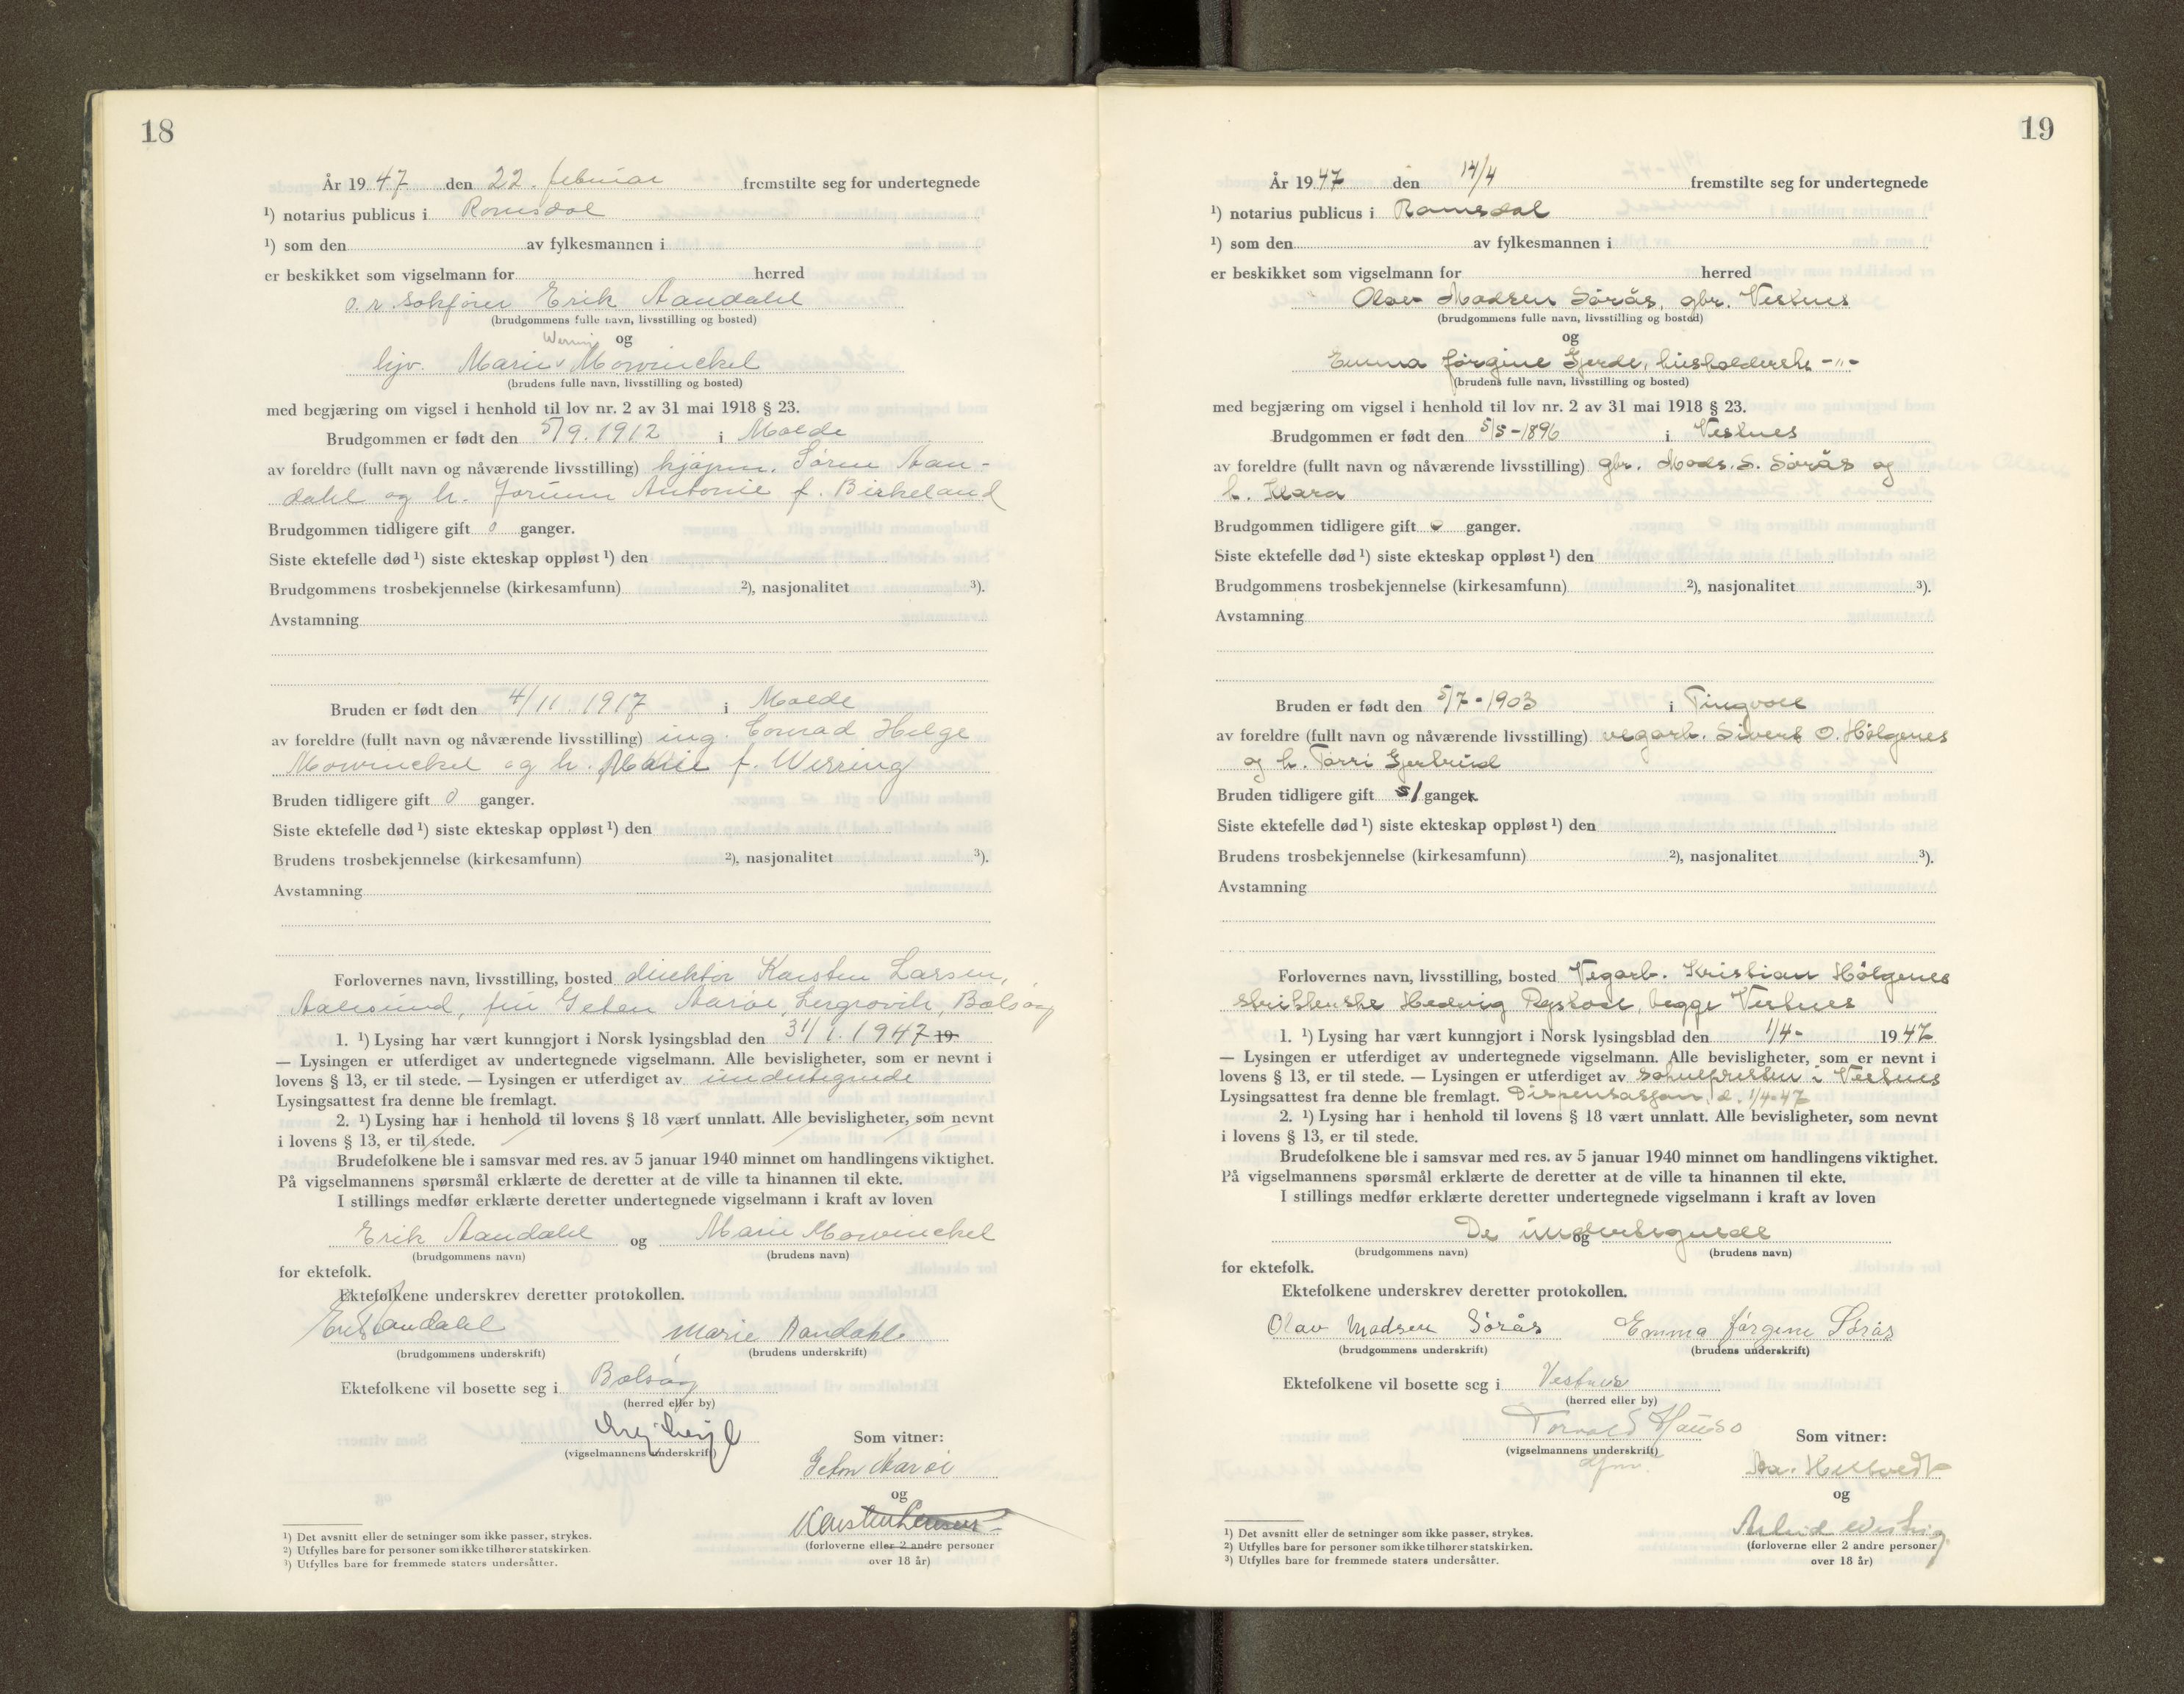 18
År 1947 den 22. februar fremstilte seg for undertegnede
¹) notarius publicus i Romsdal
¹) som den av fylkesmannen i
er beskikket som vigselmann for herred
o.r. sakfører Erik Aandahl
(brudgommens fulle navn, livsstilling og bosted)
Werring og
hjv. Marie Mowinckel
(brudens fulle navn, livsstilling og bosted)
med begjæring om vigsel i henhold til lov nr. 2 av 31 mai 1918 § 23.
Brudgommen er født den 5/9.1912 i Molde
av foreldre (fullt navn og nåværende livsstilling) kjøpm. Søren Aan-
dahl og h. Jorunn Antonie f. Birkeland
Brudgommen tidligere gift 0 ganger.
Siste ektefelle død ¹) siste ekteskap oppløst ¹) den
Brudgommens trosbekjennelse (kirkesamfunn) ²), nasjonalitet ³).
Avstamning
Bruden er født den 4/11.1917 i Molde
av foreldre (fullt navn og nåværende livsstilling) ing. Conrad Helge
Mowinckel og h. Marie f. Werring
Bruden tidligere gift 0 ganger.
Siste ektefelle død ¹) siste ekteskap oppløst ¹) den
Brudens trosbekjennelse (kirkesamfunn) ²), nasjonalitet ³).
Avstamning
Forlovernes navn, livsstilling, bosted direktør Karsten Larsen,
Aalesund, fru Aarøe, Bolsøy
1. ¹) Lysing har vært kunngjort i Norsk lysingsblad den 31/1.1947 19
— Lysingen er utferdiget av undertegnede vigselmann. Alle bevisligheter, som er nevnt i
lovens § 13, er til stede. — Lysingen er utferdiget av undertegnede
Lysingsattest fra denne ble fremlagt.
2. ¹) Lysing har i henhold til lovens § 18 vært unnlatt. Alle bevisligheter, som nevnt
i lovens § 13, er til stede.
Brudefolkene ble i samsvar med res. av 5 januar 1940 minnet om handlingens viktighet.
På vigselmannens spørsmål erklærte de deretter at de ville ta hinannen til ekte.
I stillings medfør erklærte deretter undertegnede vigselmann i kraft av loven
Erik Aandahl og Marie Mowinckel
(brudgommens navn) (brudens navn)
for ektefolk.
Ektefolkene underskrev deretter protokollen.
Erik Aandahl Marie Aandahl
(brudgommens underskrift) (brudens underskrift)
Ektefolkene vil bosette seg i Bolsøy
(herred eller by)
(vigselmannens underskrift)
Som vitner:
Aarøe
og
Karsten Larsen
(forloverne eller 2 andre personer
over 18 år)
¹) Det avsnitt eller de setninger som ikke passer, strykes.
²) Utfylles bare for personer som ikke tilhører statskirken.
³) Utfylles bare for fremmede staters undersåtter.
19
År 1947 den 14/4 fremstilte seg for undertegnede
¹) notarius publicus i Romsdal
¹) som den av fylkesmannen i
er beskikket som vigselmann for herred
Olav Madsen Sørås, gbr. Vestnes
(brudgommens fulle navn, livsstilling og bosted)
og
Emma Jørgine Gjerde, husholderske -"-
(brudens fulle navn, livsstilling og bosted)
med begjæring om vigsel i henhold til lov nr. 2 av 31 mai 1918 § 23.
Brudgommen er født den 5/5-1896 i Vestnes
av foreldre (fullt navn og nåværende livsstilling) gbr. Mads. S. Sørås og
h. Klara
Brudgommen tidligere gift 0 ganger.
Siste ektefelle død ¹) siste ekteskap oppløst ¹) den
Brudgommens trosbekjennelse (kirkesamfunn) ²), nasjonalitet ³).
Avstamning
Bruden er født den 5/7-1903 i Tingvoll
av foreldre (fullt navn og nåværende livsstilling) vegarb. Sivert O. Hølgenes
og h. Gjertrud
Bruden tidligere gift 1 ganger.
Siste ektefelle død ¹) siste ekteskap oppløst ¹) den
Brudens trosbekjennelse (kirkesamfunn) ²), nasjonalitet ³).
Avstamning
Forlovernes navn, livsstilling, bosted Vegarb. Kristian Hølgenes
Hedvig begge Vestnes
1. ¹) Lysing har vært kunngjort i Norsk lysingsblad den 1/4- 1947
— Lysingen er utferdiget av undertegnede vigselmann. Alle bevisligheter, som er nevnt i
lovens § 13, er til stede. — Lysingen er utferdiget av soknepresten i Vestnes
Lysingsattest fra denne ble fremlagt. Dispensasjon d. 1/4-47
2. ¹) Lysing har i henhold til lovens § 18 vært unnlatt. Alle bevisligheter, som nevnt
i lovens § 13, er til stede.
Brudefolkene ble i samsvar med res. av 5 januar 1940 minnet om handlingens viktighet.
På vigselmannens spørsmål erklærte de deretter at de ville ta hinannen til ekte.
I stillings medfør erklærte deretter undertegnede vigselmann i kraft av loven
De undertegnede
og
(brudgommens navn) (brudens navn)
for ektefolk.
Ektefolkene underskrev deretter protokollen.
Olav Madsen Sørås Emma Jørgine Sørås
(brudgommens underskrift) (brudens underskrift)
Ektefolkene vil bosette seg i Vestnes
(herred eller by)
(vigselmannens underskrift)
Som vitner:
og
(forloverne eller 2 andre personer
over 18 år)
¹) Det avsnitt eller de setninger som ikke passer, strykes.
²) Utfylles bare for personer som ikke tilhører statskirken.
³) Utfylles bare for fremmede staters undersåtter.